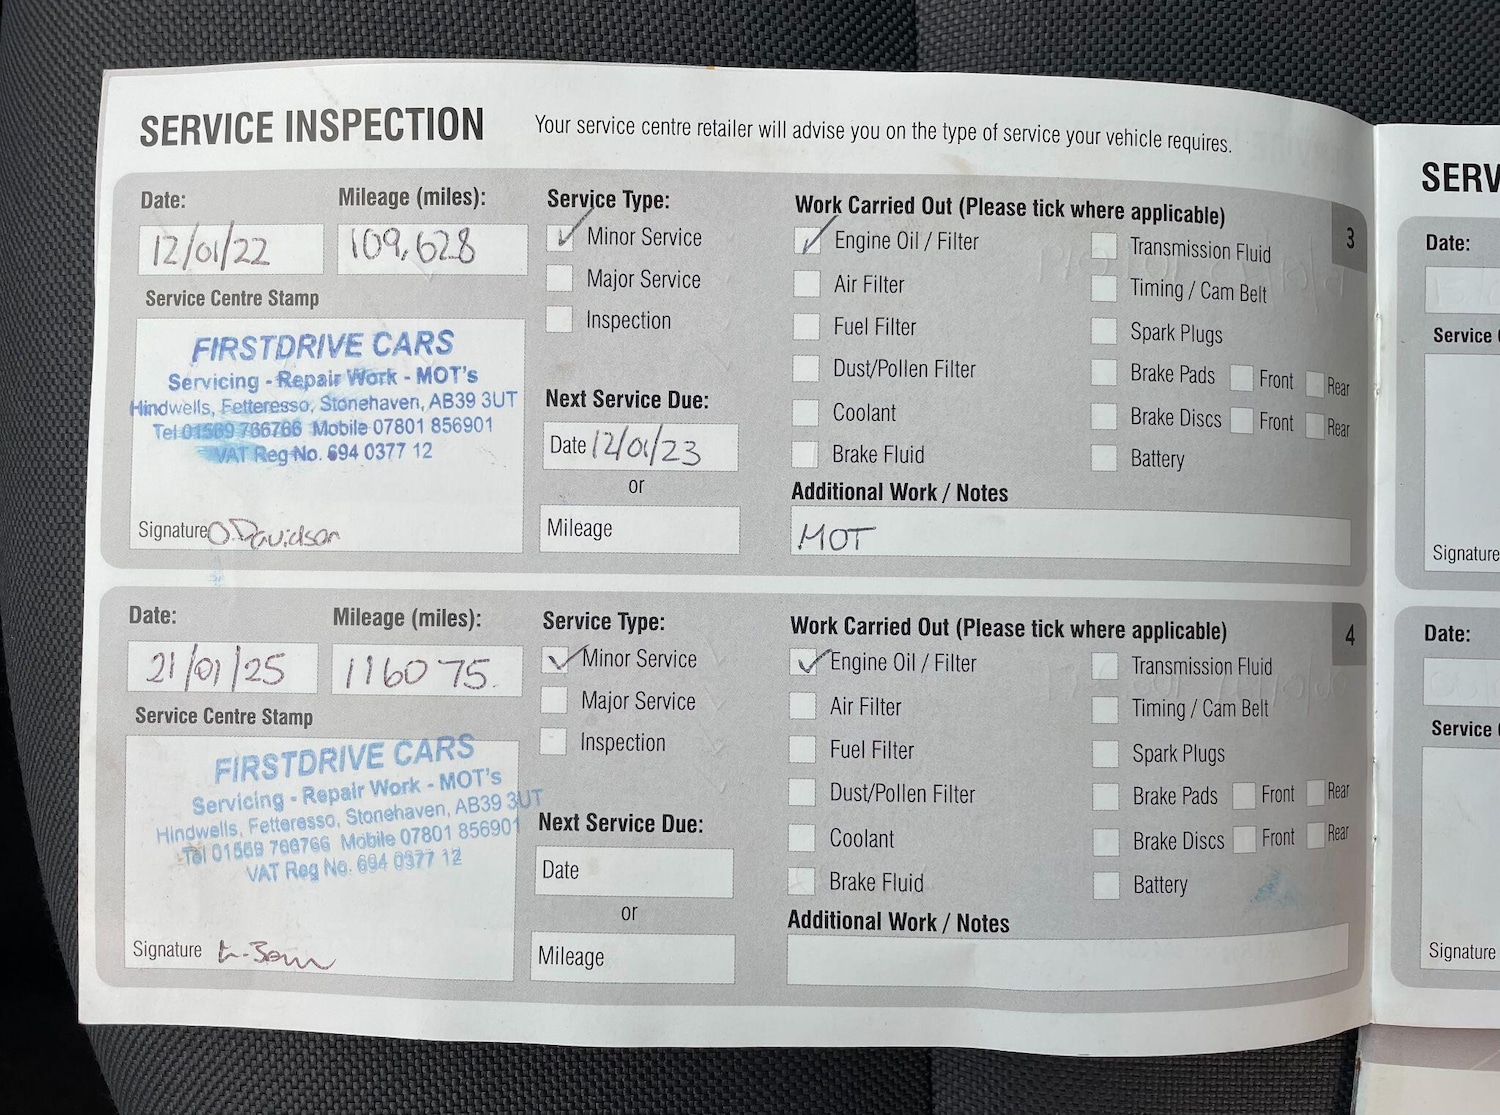 SERVICE INSPECTION
Your service centre retailer will advise you on the type of service your vehicle requires.
Date: Mileage (miles):
12/01/22 109,628
Service Centre Stamp
FIRSTDRIVE CARS
Servicing - Repair Work - MOT's
Hindwells, Fetteresso, Stonehaven, AB39 3UT
Tel 01569 766766 Mobile 07801 856901
VAT Reg No. 694 0377 12
Signature O.Davidson
Service Type:
Minor Service
Major Service
Inspection
Next Service Due:
Date 12/01/23
or
Mileage
Work Carried Out (Please tick where applicable)
3
Engine Oil / Filter
Air Filter
Fuel Filter
Dust/Pollen Filter
Coolant
Brake Fluid
Transmission Fluid
Timing / Cam Belt
Spark Plugs
Brake Pads Front Rear
Brake Discs Front Rear
Battery
Additional Work / Notes
MOT
Date: Mileage (miles):
21/01/25 116075.
Service Centre Stamp
FIRSTDRIVE CARS
Servicing - Repair Work - MOT's
Hindwells, Fetteresso, Stonehaven, AB39 3UT
Tel 01569 766766 Mobile 07801 856901
VAT Reg No. 694 0377 12
Signature
Service Type:
Minor Service
Major Service
Inspection
Next Service Due:
Date
or
Mileage
Work Carried Out (Please tick where applicable)
4
Engine Oil / Filter
Air Filter
Fuel Filter
Dust/Pollen Filter
Coolant
Brake Fluid
Transmission Fluid
Timing / Cam Belt
Spark Plugs
Brake Pads Front Rear
Brake Discs Front Rear
Battery
Additional Work / Notes
SERV
Date:
Service
Signature
Date:
Service
Signature